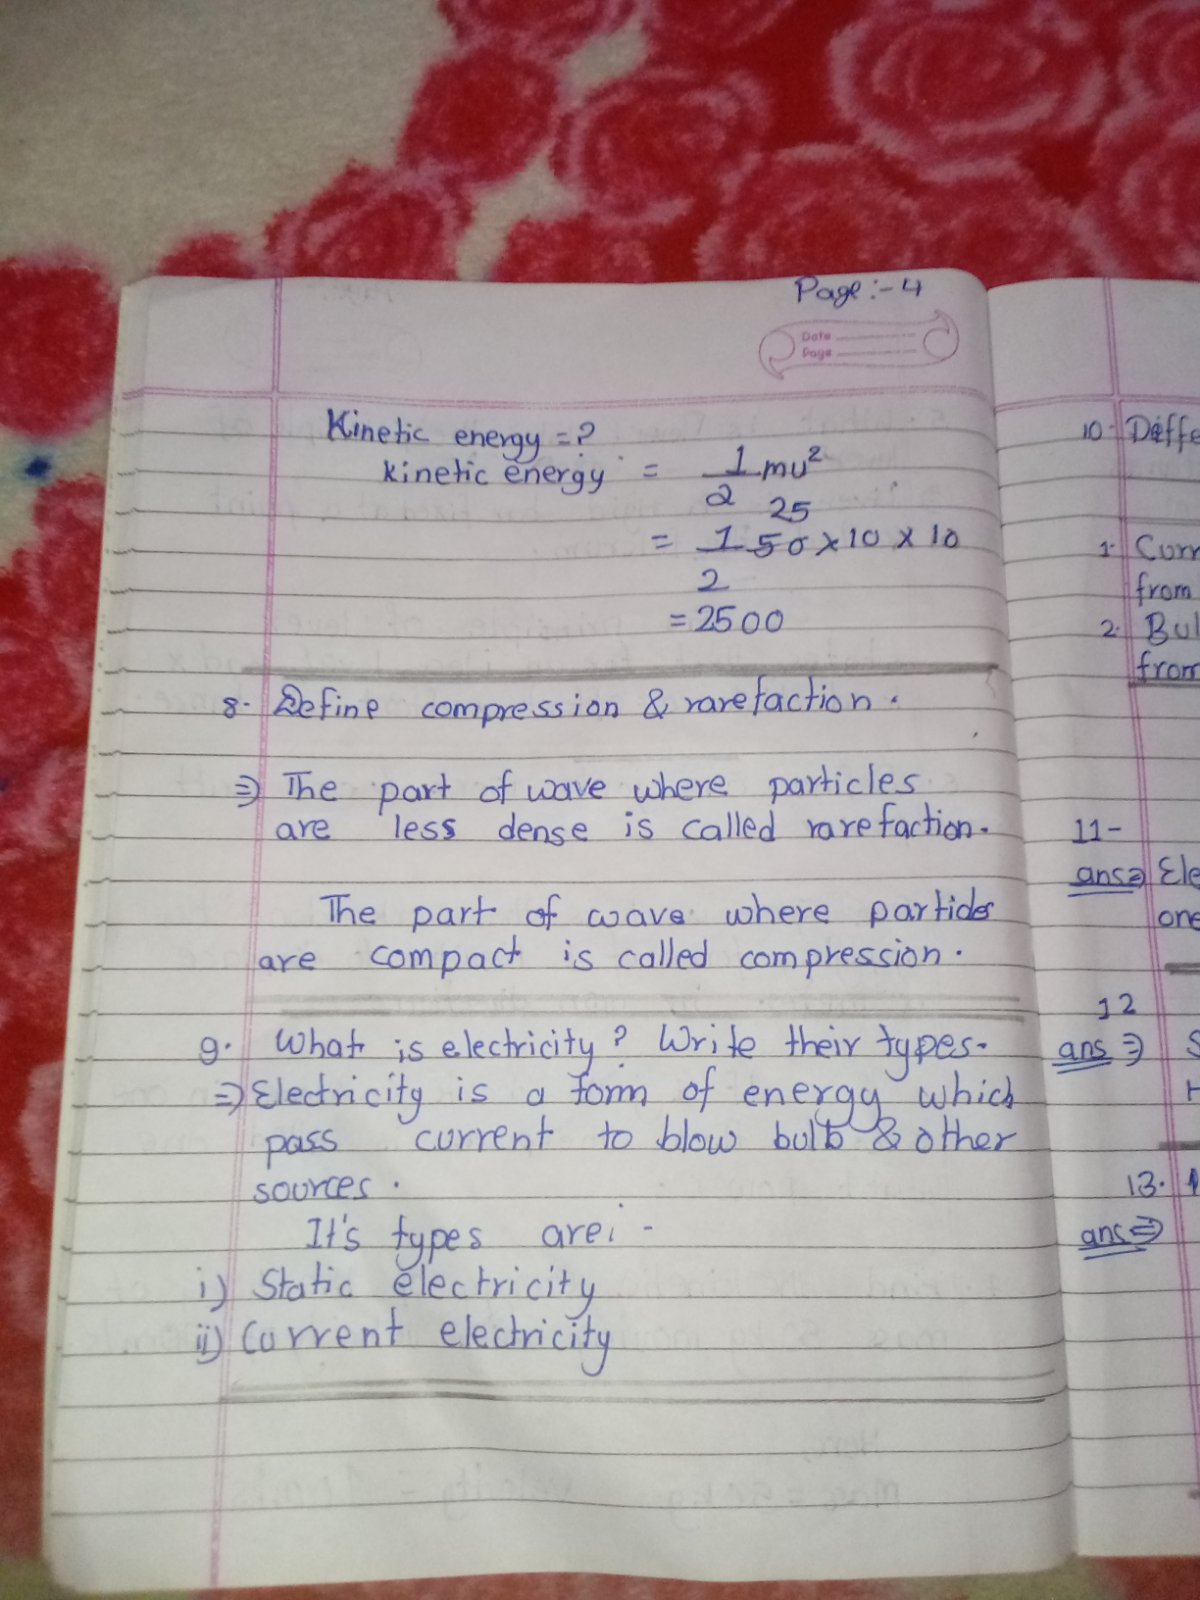 Page:- 4
Date
Page
Kinetic energy = ?
kinetic energy = 1/2 mu²
25
= 1/2 50 x 10 x 10
= 2500
8. Define compression & rarefaction.
⇒ The part of wave where particles
are less dense is called rarefaction.
The part of wave where particles
are compact is called compression.
9. What is electricity? Write their types.
⇒ Electricity is a form of energy which
pass current to blow bulb & other
sources.
It's types are:-
i) Static electricity
ii) Current electricity
10. Diffe
1. Curr
from
2. Bul
from
11-
ans⇒ Ele
one
12
ans ⇒ S
13.
ans⇒